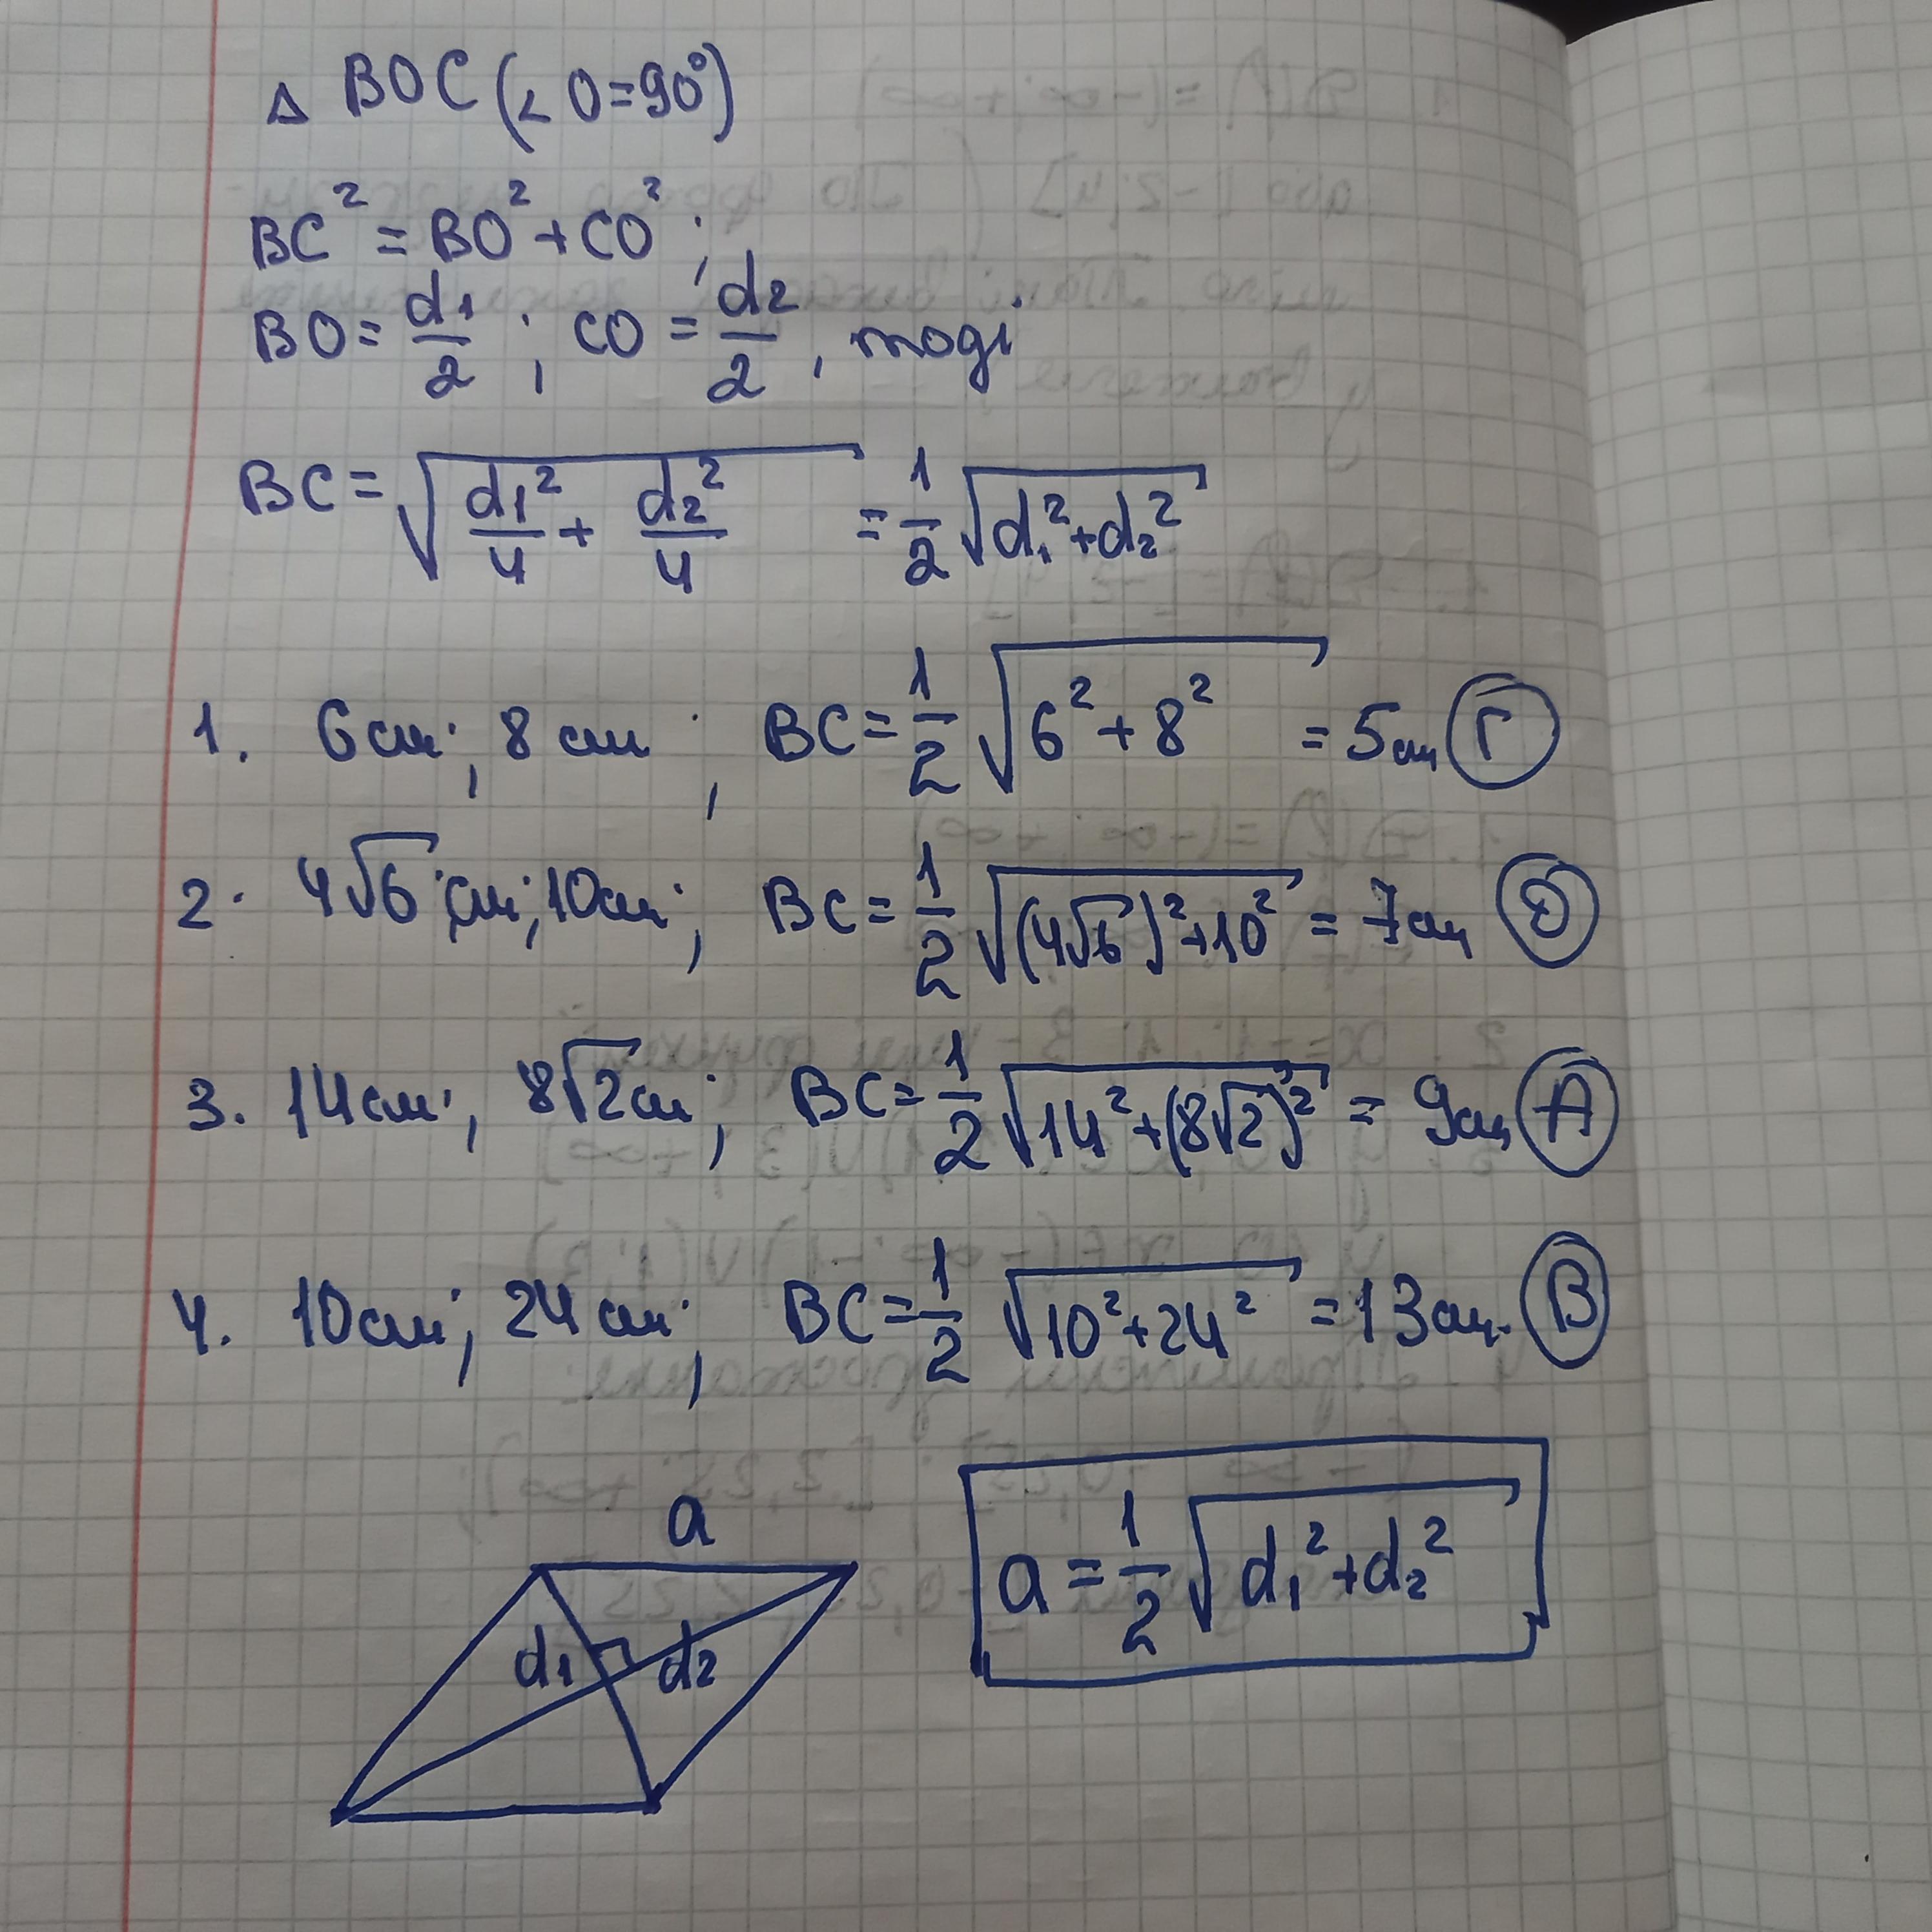 △ BOC (∠ O=90°)
BC² = BO² + CO² ;
BO = d₁/2 ; CO = d₂/2 , тоді
BC = √(d₁²/4 + d₂²/4) = 1/2 √(d₁²+d₂²)
1. 6 см; 8 см ; BC = 1/2 √(6²+8²) = 5 см Г
2. 4√6 см; 10 см; BC = 1/2 √((4√6)²+10²) = 7 см Д
3. 14 см; 8√2 см; BC = 1/2 √(14²+(8√2)²) = 9 см А
4. 10 см; 24 см; BC = 1/2 √(10²+24²) = 13 см. В
a
d₁ d₂
a = 1/2 √(d₁²+d₂²)